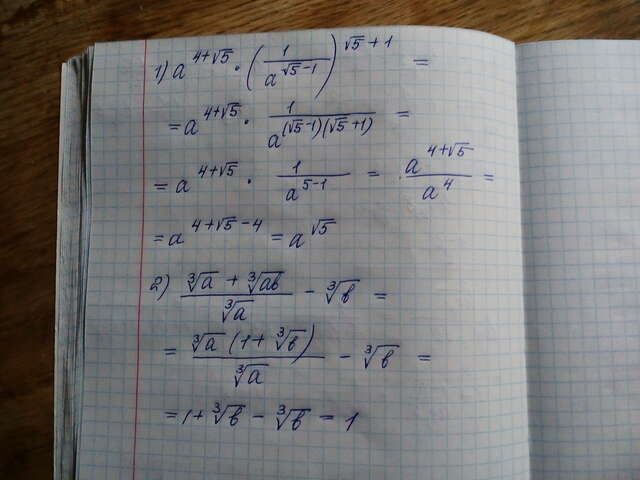 1) a^(4+√5) · (1/a^(√5-1))^(√5+1) =
= a^(4+√5) · 1/a^((√5-1)(√5+1)) =
= a^(4+√5) · 1/a^(5-1) = a^(4+√5)/a^4 =
= a^(4+√5-4) = a^√5
2) (∛a + ∛ab)/∛a - ∛b =
= ∛a (1+ ∛b)/∛a - ∛b =
= 1+ ∛b - ∛b = 1